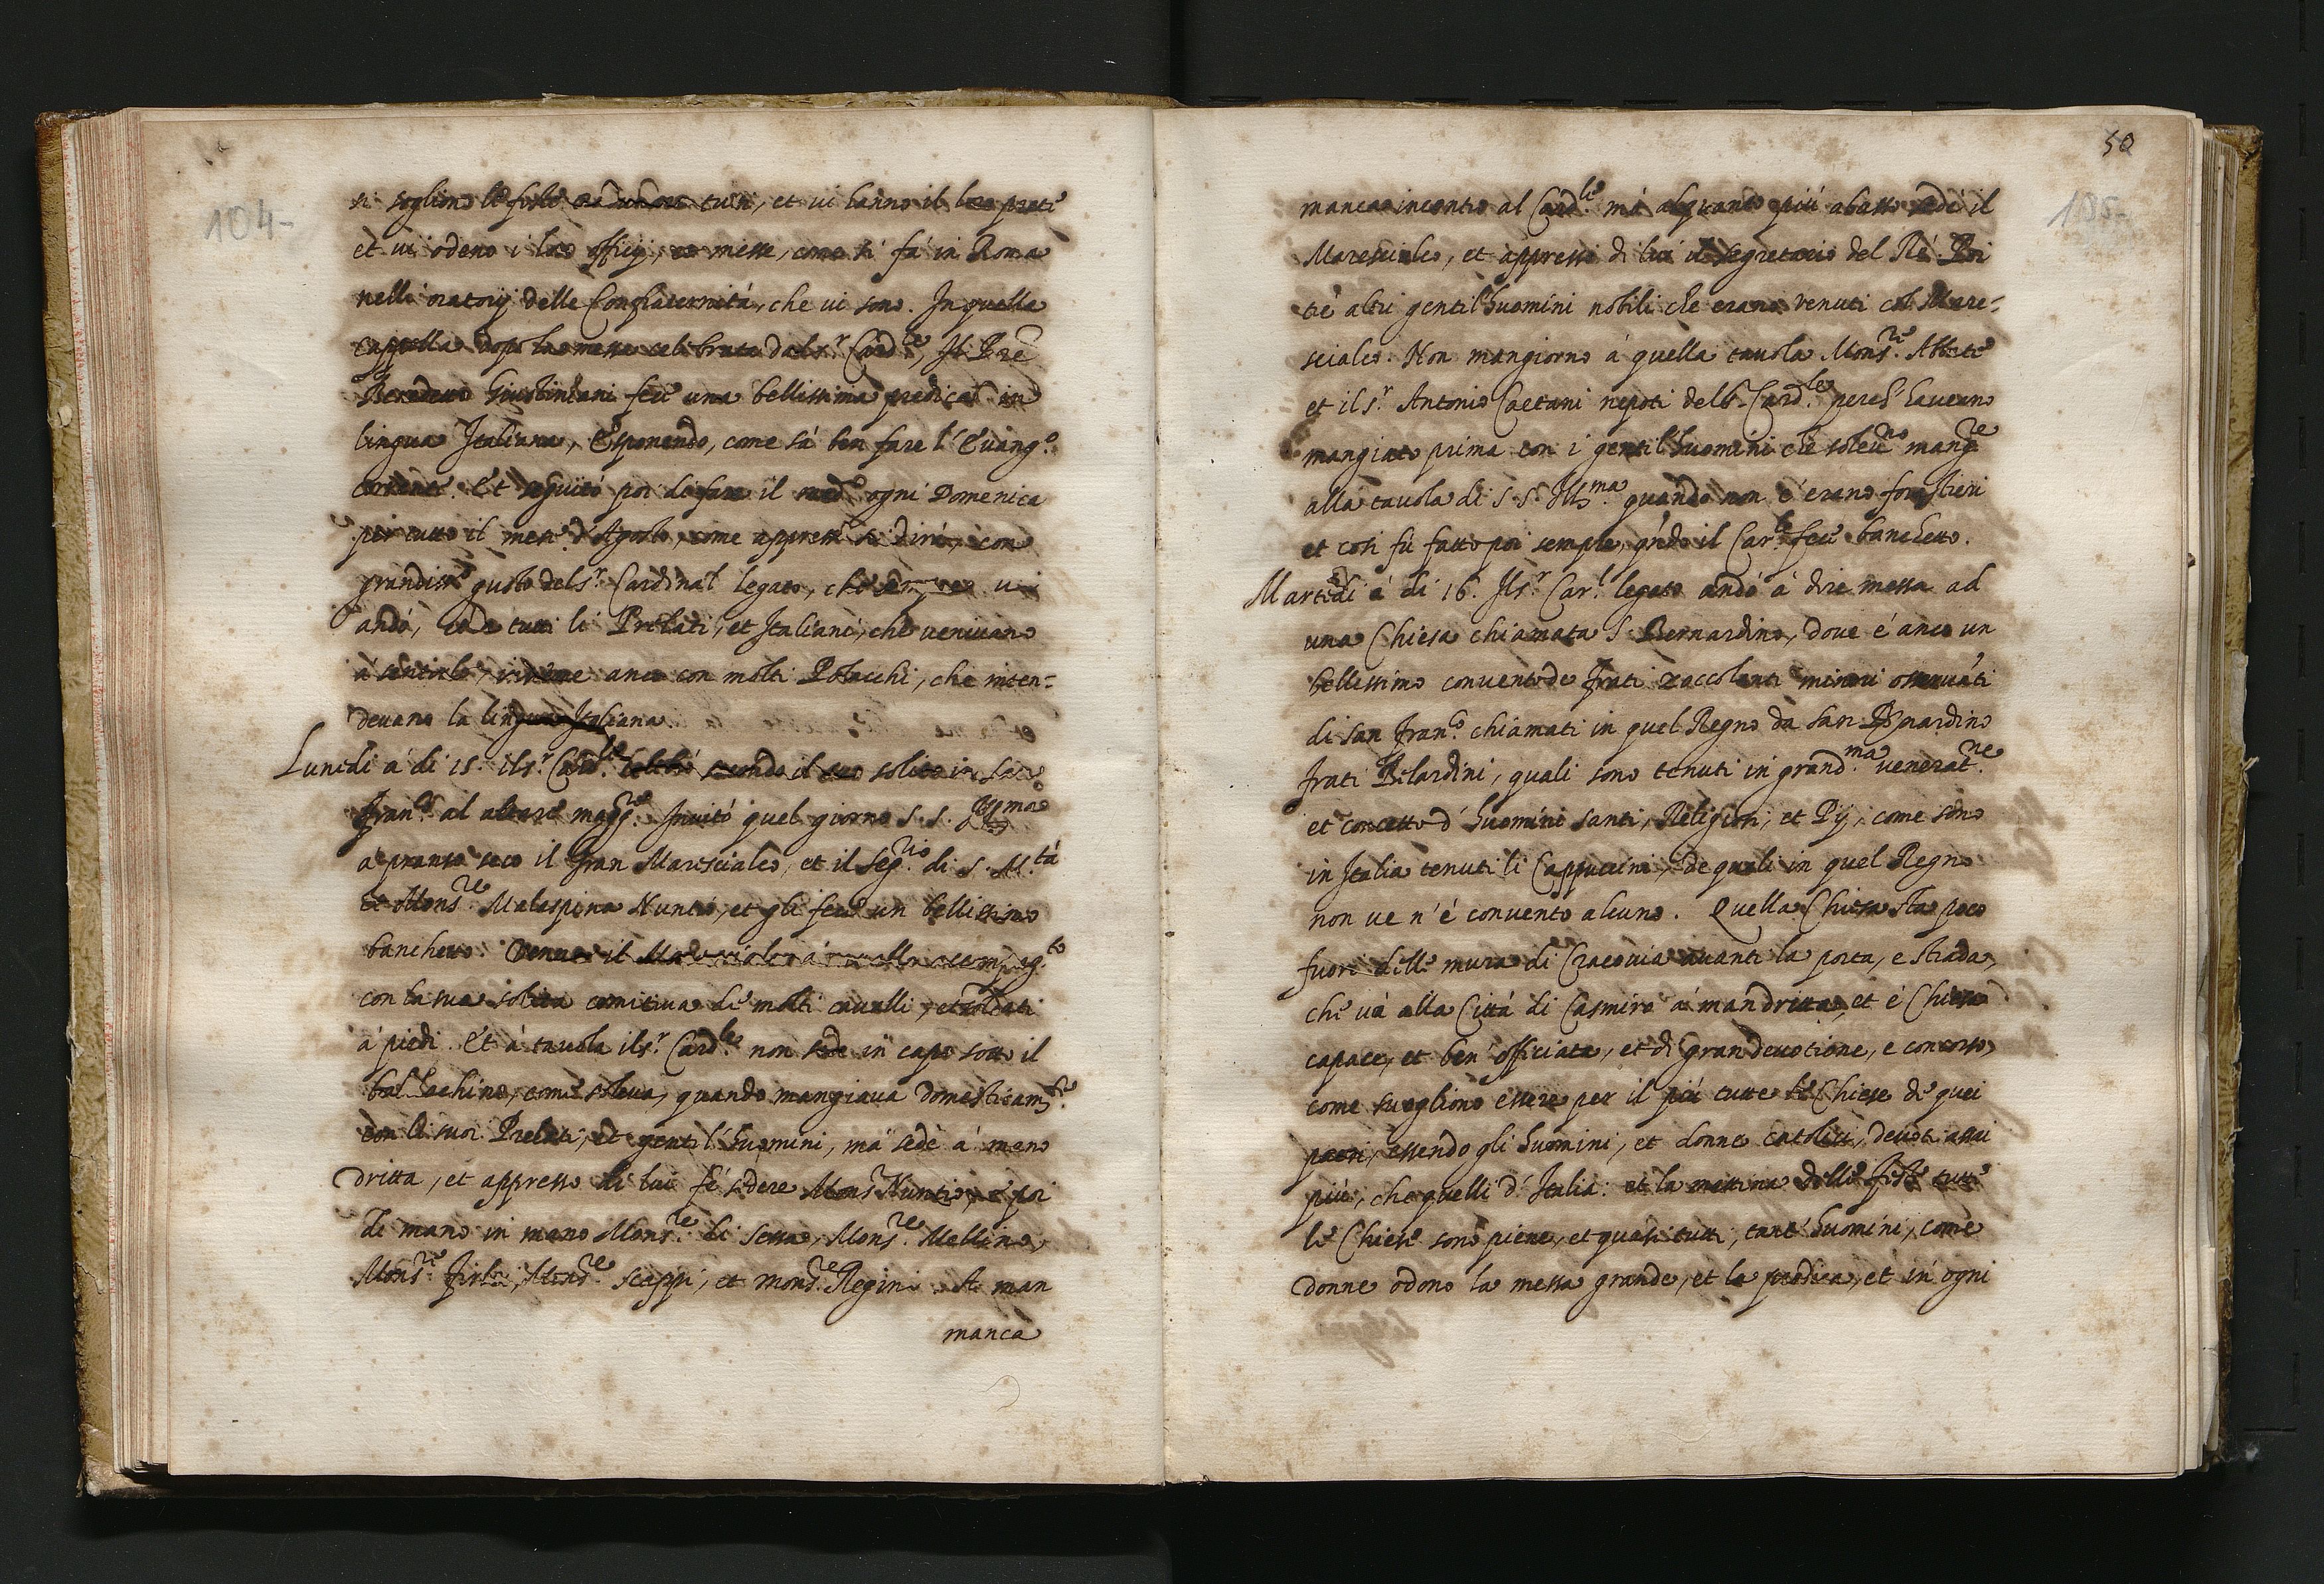 104-
si sogliono le feste radunare tutti, et vi hanno il loro prete
et vi odeno i loro officij, et messe, come si fà in Roma
nelli oratorij delle Confraternità, che vi sono. In quella
cappella dopo la messa celebrata dal s.r Card.le, Il P̃re
Benedetto Giustiniani fece una bellissima predica in
lingua Italiana, Esponendo, come sà ben fare l'Euang.o
corrente. Et seguitò poi di fare il med.o ogni Domenica
per tutto il mese d'Agosto, come appresso si dirà, con
grandiss.o gusto del s.r Cardinal legato, che sempre vi
andò, et de tutti li Prelati, et Italiani, che venivano
à sentirlo, insieme anco con molti Polacchi, che inten=
devano la lingua Italiana.
Lunedi à di 15. il s.r Card.le celebrò secondo il suo solito in san
Fran.co al altare magg.re Invitò quel giorno S. S. Ill.ma
à pranso seco il Gran Marescialco, et il Seg.rio di S. M.tà
et Mons.re Malaspina Nuntio, et gli fece un bellissimo
banchetto. Venne il Marescialco à cavallo accompag.to
con la sua solita comitiva di molti cavalli, et soldati
à piedi. Et à tavola il s.r Card.le non sede in capo sotto il
baldachino, come soleva, quando mangiava domesticam.te
con li suoi Prelati, et gentil'huomini, mà sedè à mano
dritta, et appresso di lui fè sedere Mons.r Nuntio, e poi
di mano in mano Mons.re di Sessa, Mons.re Mellino,
Mons.re Mons.re Scappi, et Mons.re Regini. A man
manca
50
105-
manca incontro al Card.le mà alquanto più abasso sedè il
Marescialco, et appresso di lui il segretario del Rè. Poi
trè altri gentil'huomini nobili che erano venuti col Mare=
scialco. Non mangiorno à quella tavola Mons.re Abbate
et il s.r Antonio Caetani nepoti del s.r Card.le perch' haveano
mangiato prima con i gentil'huomini che solev.no mang.re
alla tavola di S. S. Ill.ma quando non c'erano forastieri
et così fù fatto poi sempre, q̃ndo il Car.le fece banchetto.
Martedi à di 16. Il s.r Car.l legato andò à dire messa ad
una Chiesa chiamata S. Bernardino, dove è anco un
bellissimo convento de frati zoccolanti minori osservãti
di san Fran.co chiamati in quel Regno da san Bernardino
frati Bilardini, quali sono tenuti in grand.ma venerat.ne
et concetto d'huomini santi, Religiosi, et Pij, come sono
in Italia tenuti li Cappuccini, de quali in quel Regno
non ve n'è convento alcuno. Quella Chiesa sta poco
fuori delle mura di Cracovia avanti la porta, e strada,
che và alla Città di Casmiro à mandritta, et è Chiesa
capace, et ben' officiata, et di gran devotione, e concorso,
come sogliono essere per il più tutte le Chiese de quei
paesi, essendo gli huomini, et donne catolici, devoti assai
più, che quelli d'Italia: et la mattina delle feste tutte
le Chiese sono piene, et quasi tutti, tant' huomini, come
donne odono la messa grande, et la predica, et in ogni